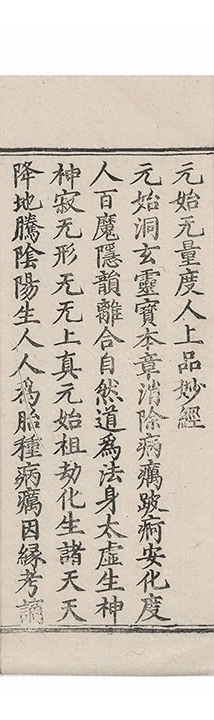 元始无量度人上品妙經
元始洞玄靈寶本章消除病癘跛痾安化度
人百魔隱韻離合自然道為法身太虛生神
神寂无形无无上真元始祖劫化生諸天天
降地騰陰陽生人人為胎種病癘因緣考謫